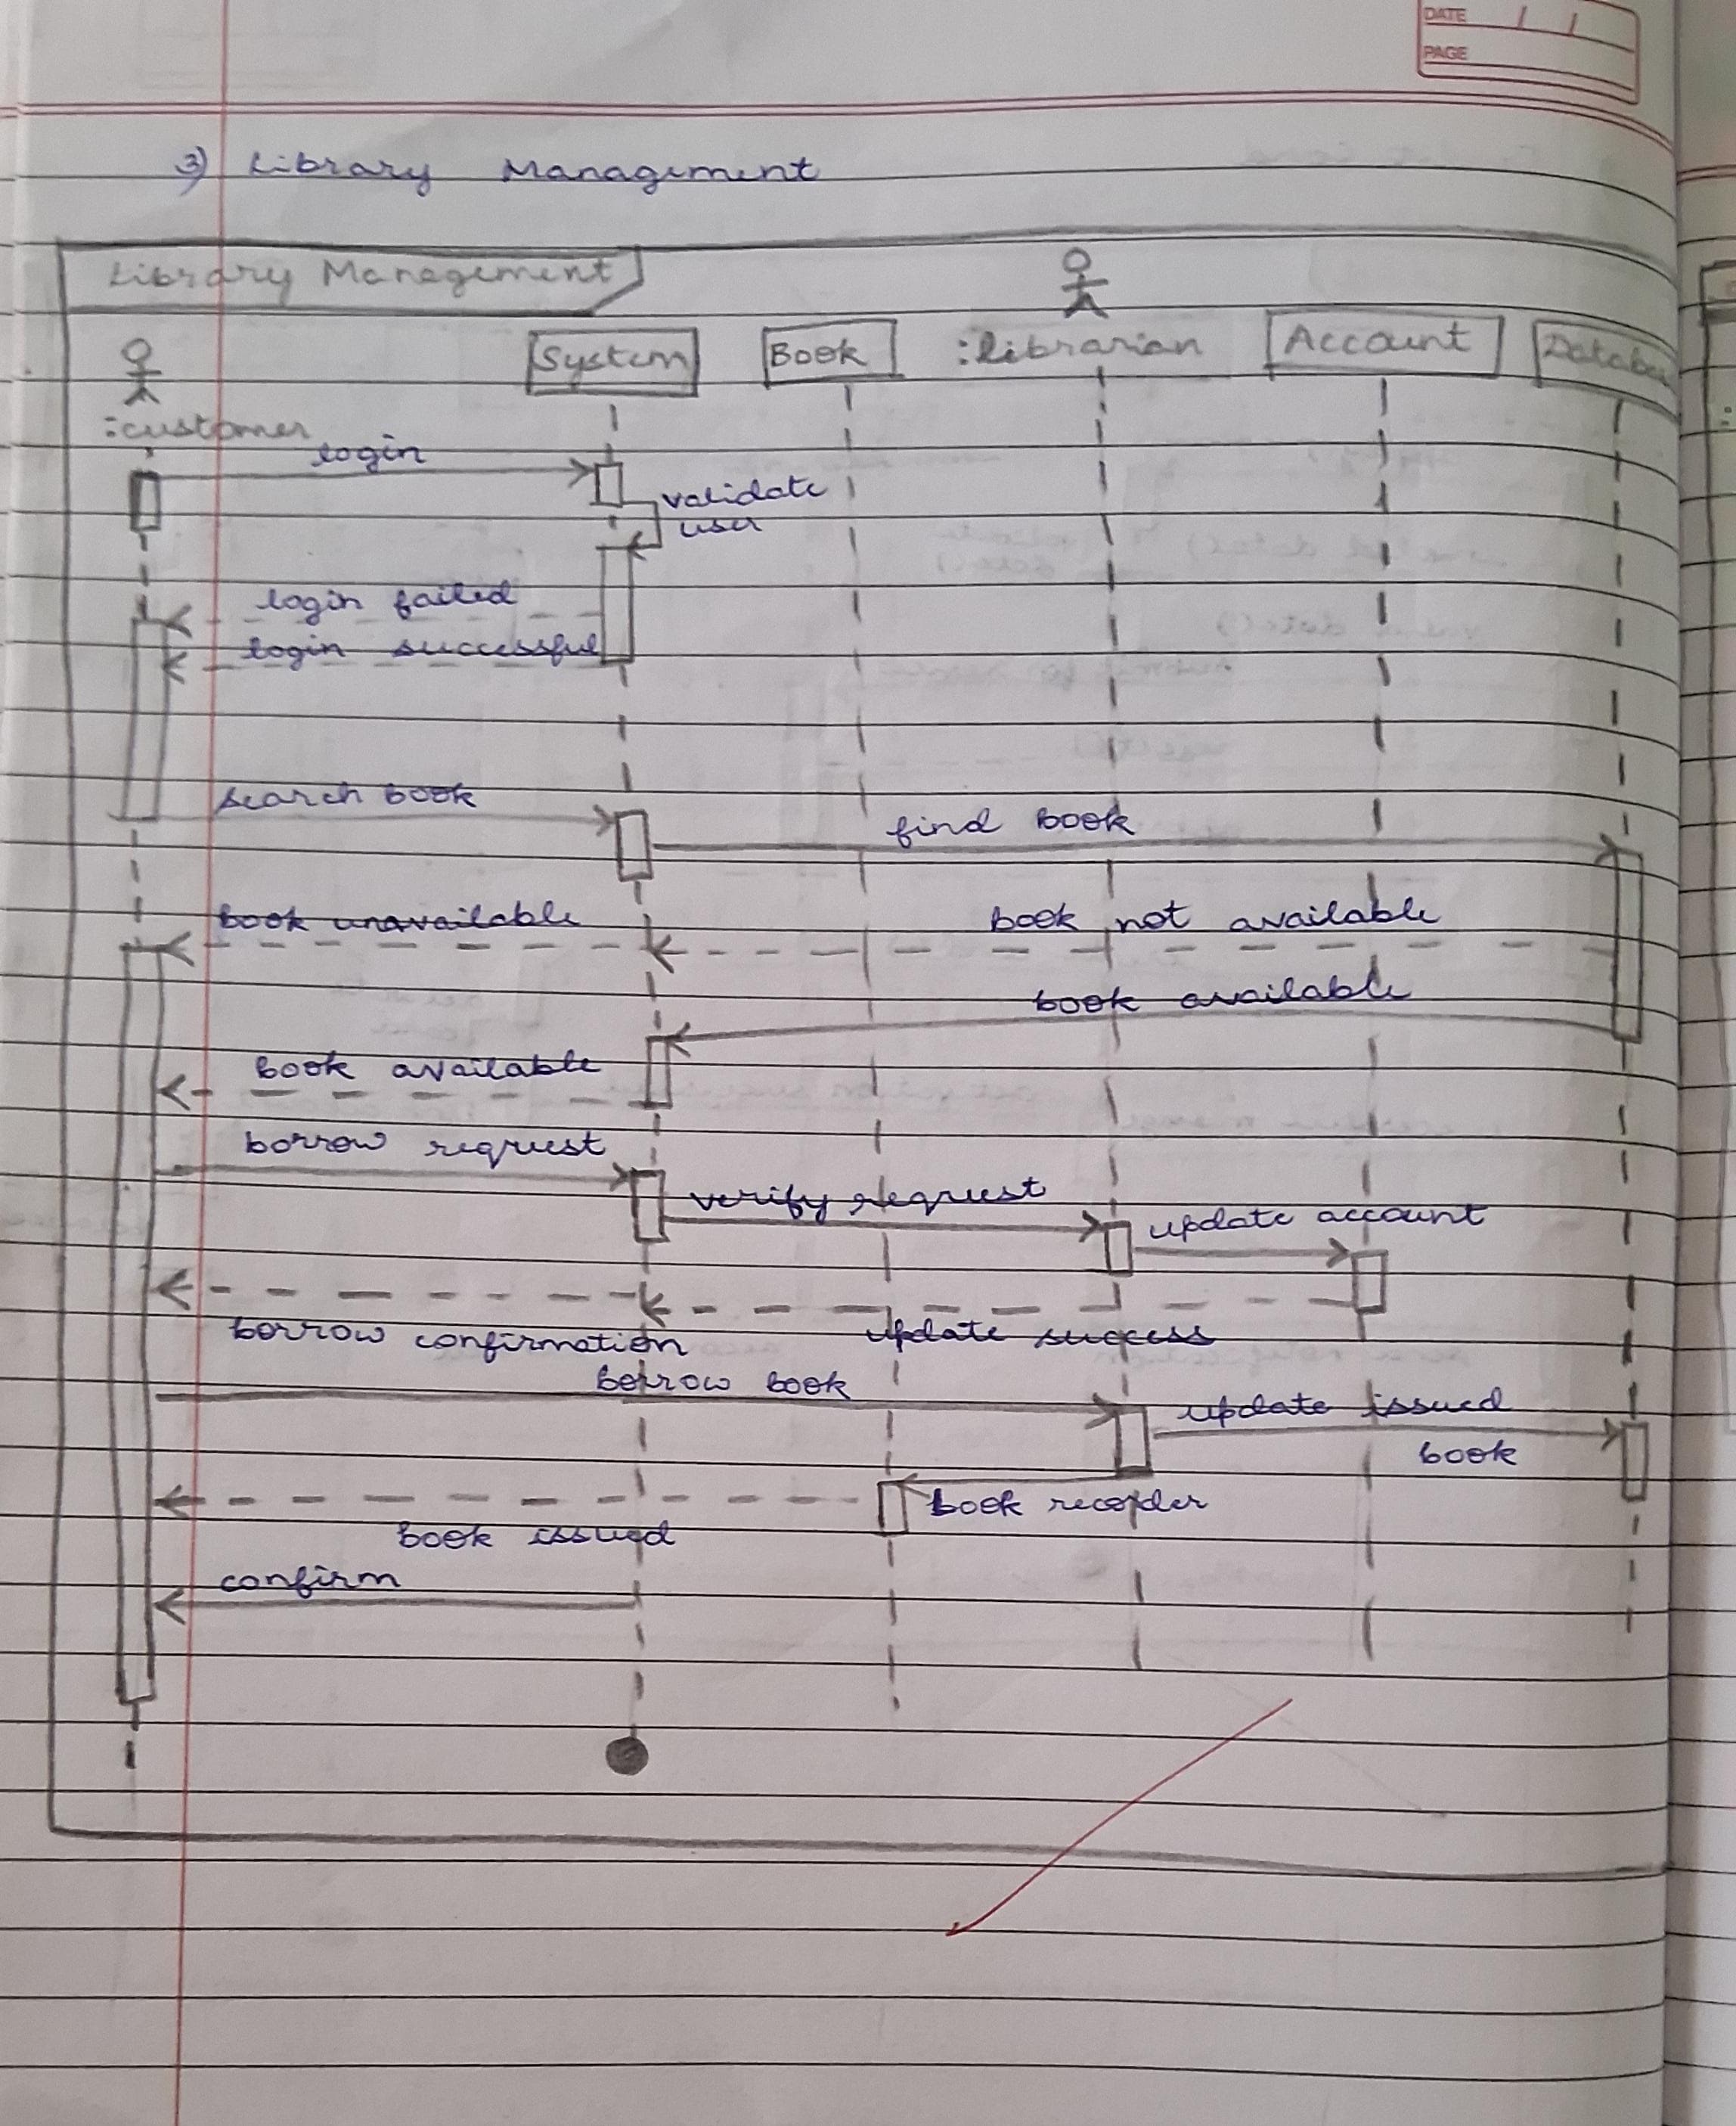 DATE / /
PAGE
3) Library Management
Library Management
:customer
System
Book
:librarian
Account
login
validate
user
login failed
login successful
search book
find book
book unavailable
book not available
book available
book available
borrow request
verify request
update account
borrow confirmation
update success
borrow book
update issued
book
book recorder
book issued
confirm